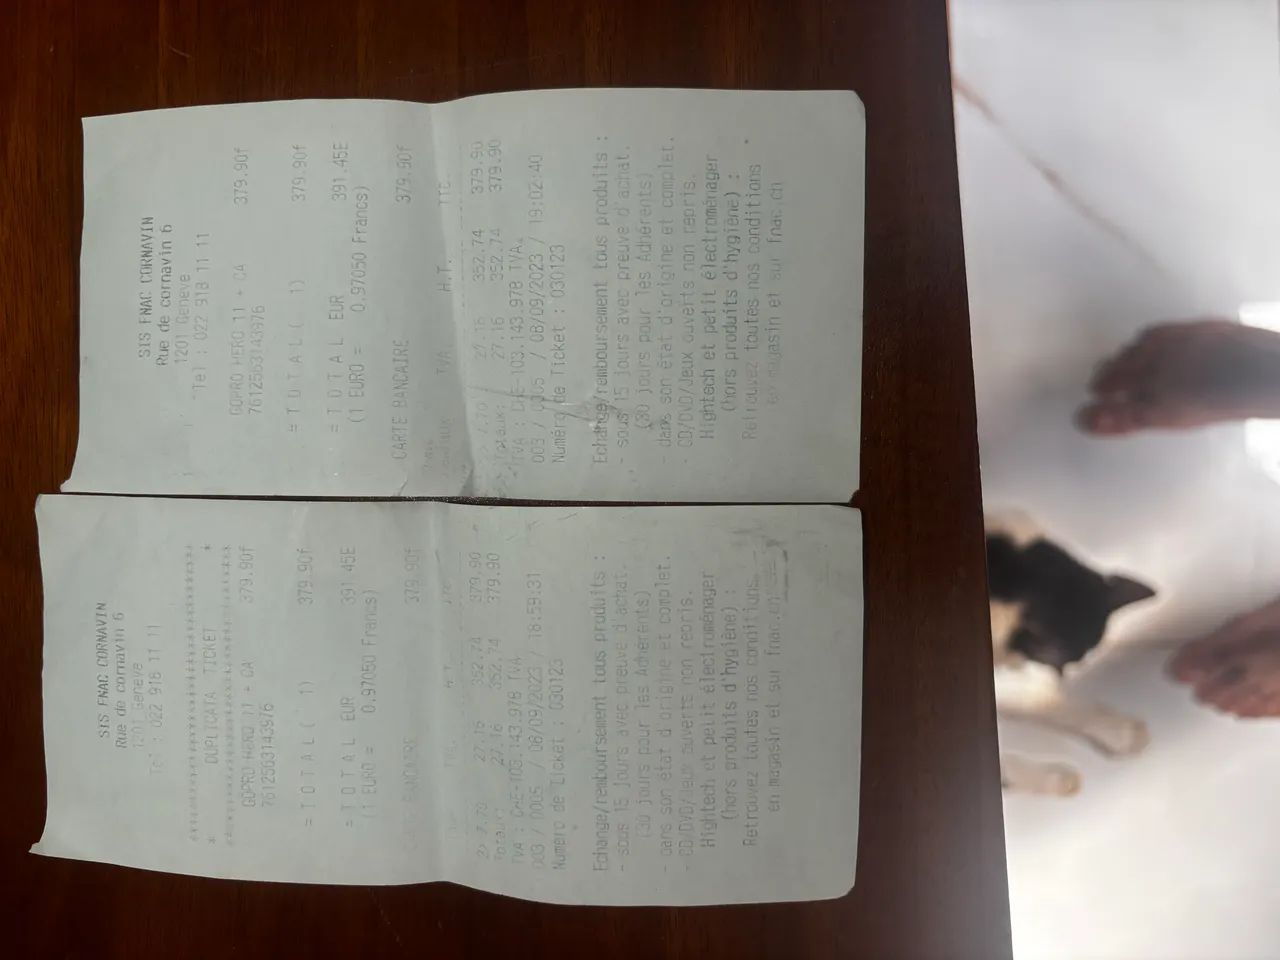 SIS FNAC CORNAVIN
Rue de cornavin 6
1201 Geneve
Tel : 022 918 11 11
GOPRO HERO 11 + CA 379.90f
7612563143976
= T O T A L ( 1) 379.90f
= T O T A L EUR 391.45E
(1 EURO = 0.97050 Francs)
CARTE BANCAIRE 379.90f
TVA H.T. TTC
7.70 27.16 352.74 379.90
Totaux: 27.16 352.74 379.90
TVA : CHE-103.143.978 TVA.
003 / 0005 / 08/09/2023 / 19:02:40
Numéro de Ticket : 030123
Echange/remboursement tous produits :
- sous 15 jours avec preuve d'achat.
(30 jours pour les Adhérents)
- dans son état d'origine et complet.
- CD/DVD/Jeux ouverts non repris.
Hightech et petit électroménager
(hors produits d'hygiène) :
Retrouvez toutes nos conditions
en magasin et sur fnac.ch
SIS FNAC CORNAVIN
Rue de cornavin 6
1201 Geneve
Tel : 022 918 11 11
* DUPLICATA TICKET *
GOPRO HERO 11 + CA 379.90f
7612563143976
= T O T A L ( 1) 379.90f
= T O T A L EUR 391.45E
(1 EURO = 0.97050 Francs)
CARTE BANCAIRE 379.90f
2) 7.70 27.16 352.74 379.90
Totaux: 27.16 352.74 379.90
TVA : CHE-103.143.978 TVA
003 / 0005 / 08/09/2023 / 18:59:31
Numéro de Ticket : 030123
Echange/remboursement tous produits :
- sous 15 jours avec preuve d'achat.
(30 jours pour les Adhérents)
- dans son état d'origine et complet.
- CD/DVD/Jeux ouverts non repris.
Hightech et petit électroménager
(hors produits d'hygiène) :
Retrouvez toutes nos conditions
en magasin et sur fnac.ch